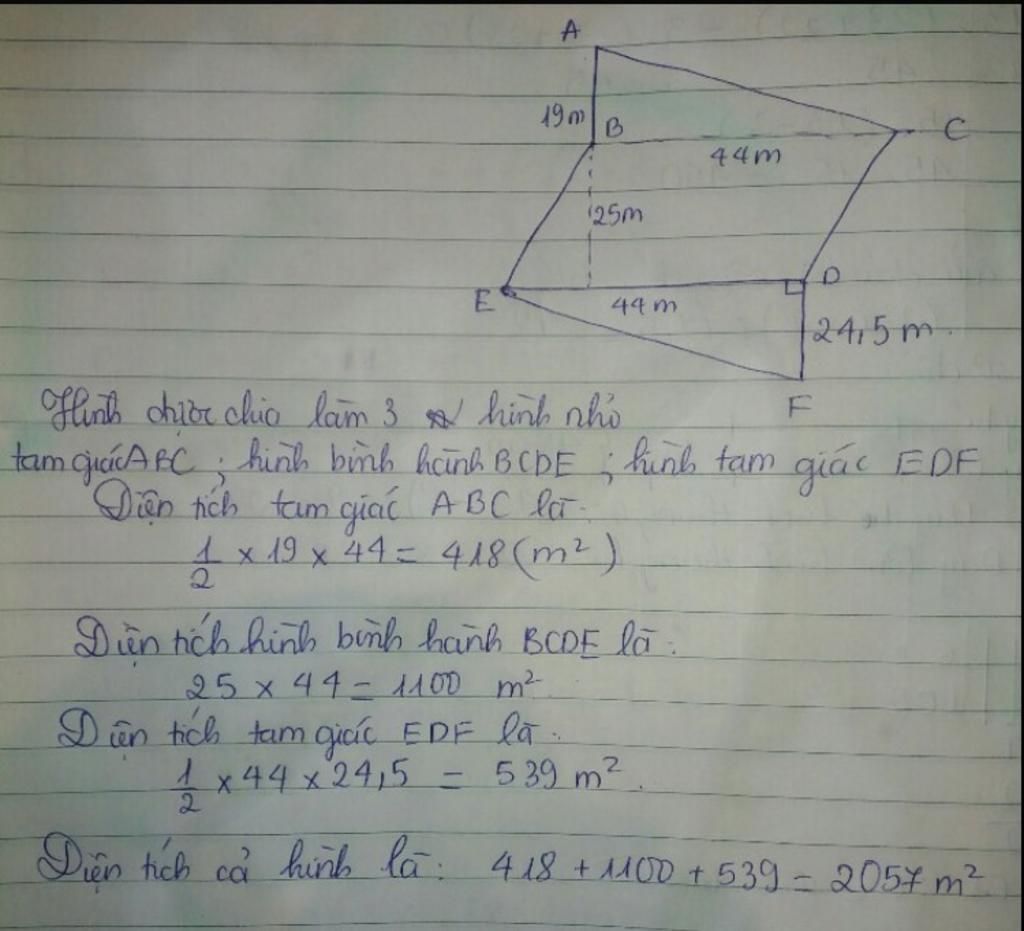 A
19m
B
C
44m
25m
E
D
44m
24,5m.
F
Hình được chia làm 3 hình nhỏ
tam giác ABC ; hình bình hành BCDE ; hình tam giác EDF
Diện tích tam giác ABC là.
1/2 × 19 × 44 = 418 (m²)
Diện tích hình bình hành BCDE là:
25 × 44 = 1100 m²
Diện tích tam giác EDF là.
1/2 × 44 × 24,5 = 539 m².
Diện tích cả hình là: 418 + 1100 + 539 = 2057 m²